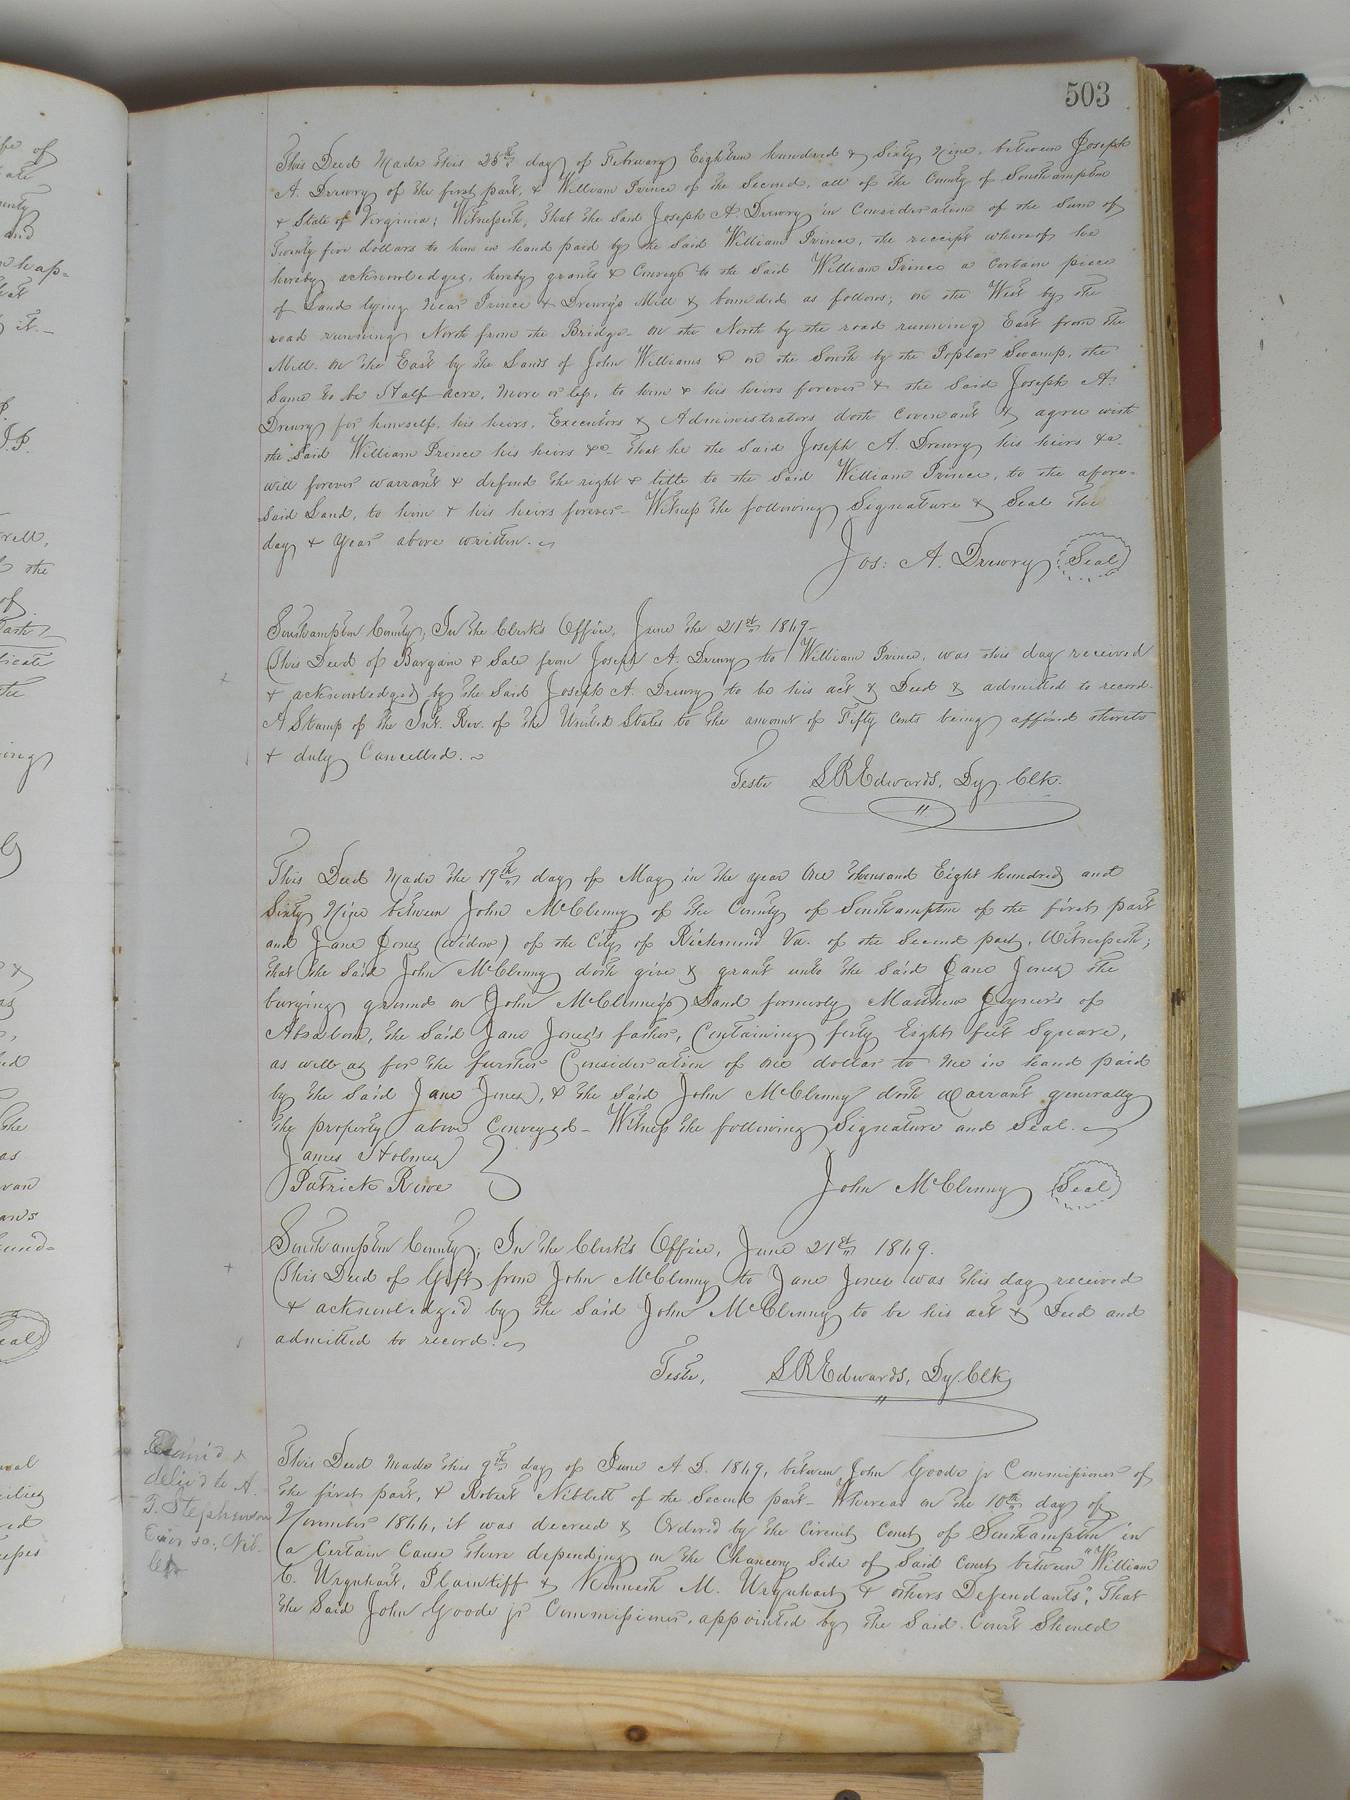 503
This Deed Made this 25th day of February Eighteen hundred & Sixty Nine, between Joseph
A. Drewry of the first part, & William Prince of the Second, all of the County of Southampton
& State of Virginia; Witnesseth, That the Said Joseph A. Drewry in Consideration of the Sum of
Twenty five dollars to him in hand paid by the Said William Prince, the receipt whereof he
hereby acknowledges, hereby grants & Conveys to the Said William Prince a Certain piece
of Land lying Near Prince & Drewry's Mill & bounded as follows; on the West by the
road running North from the Bridge - on the North by the road running East from the
Mill. on the East by the Lands of John Williams & on the South by the Poplar Swamp, the
Same to be Half acre, More or less, to him & his heirs forever & the Said Joseph A.
Drewry for himself, his heirs, Executors & Administrators doth Covenant & agree with
the Said William Prince his heirs &c - that he the Said Joseph A. Drewry his heirs &c
will forever warrant & defend the right & title to the Said William Prince, to the afore-
Said Land, to him & his heirs forever - Witness the following Signature & Seal the
day & Year above written.
Jos: A. Drewry (Seal)
Southampton County; In the Clerk's Office, June the 21st 1869 -
This Deed of Bargain & Sale from Joseph A. Drewry to William Prince, was this day received
& acknowledged by the Said Joseph A. Drewry to be his act & Deed & admitted to record.
A Stamp of the Int. Rev. of the United States to the amount of Fifty Cents being affixed thereto
& duly Cancelled.
Teste S R Edwards, Dy. Clk.
This Deed Made the 19th day of May in the year One thousand Eight hundred and
Sixty Nine between John McClenny of the County of Southampton of the first part
and Jane Jones (widow) of the City of Richmond Va. of the Second part, Witnesseth;
that the Said John McClenny doth give & grant unto the Said Jane Jones the
burying ground on John McClenny's Land formerly Matthew Joyner's of
Absalom, the Said Jane Jones's father, Containing forty Eight feet Square,
as well as for the further Consideration of One dollar to me in hand paid
by the Said Jane Jones, & the Said John McClenny doth warrant generally
the property above Conveyed - Witness the following Signature and Seal.
James Holmes
Patrick Rowe
John McClenny (Seal)
Southampton County; In the Clerk's Office, June 21st 1869.
This Deed of Gift from John McClenny to Jane Jones was this day received
& acknowledged by the Said John McClenny to be his act & Deed and
admitted to record.
Teste, S R Edwards, Dy. Clk
This Deed made this 9th day of June A D. 1869, between John Goode jr Commissioner of
the first part, & Robert Niblett of the Second part - Whereas on the 10th day of
November 1866, it was decreed & Ordered by the Circuit Court of Southampton in
a Certain Cause there depending on the Chancery Side of Said Court between "William
C. Urquhart, Plaintiff & Kenneth M. Urquhart & others Defendants"; That
the Said John Goode jr Commissioner, appointed by the Said Court Should
Exam'd &
deliv'd to A.
J. Stephenson
Nib-
lett